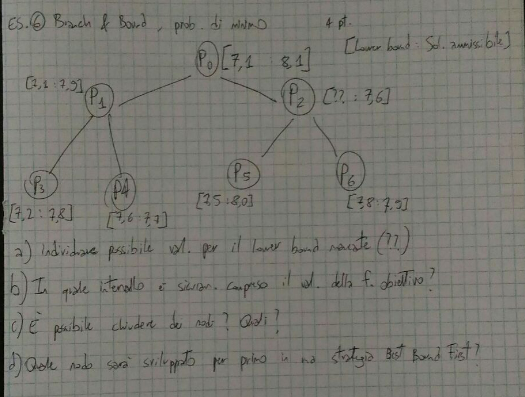 ES. 6 Branch & Bound, prob. di minimo 4 pt.
[Lower bound : Sol. ammissibile]
P0 [7,1 : 8,1]
[7,1 : 7,9] P1 P2 [??, : 7,6]
P3 P4 P5 P6
[7,2 : 7,8] [7,6 : 7,7] [7,5 : 8,0] [7,8 : 7,9]
a) Individuare possibile val. per il lower bound mancante (??)
b) In quale intervallo è sicuram. compreso il val. della f. obiettivo?
c) È possibile chiudere dei nodi? Quali?
d) Quale nodo sarà sviluppato per primo in una strategia Best Bound First?